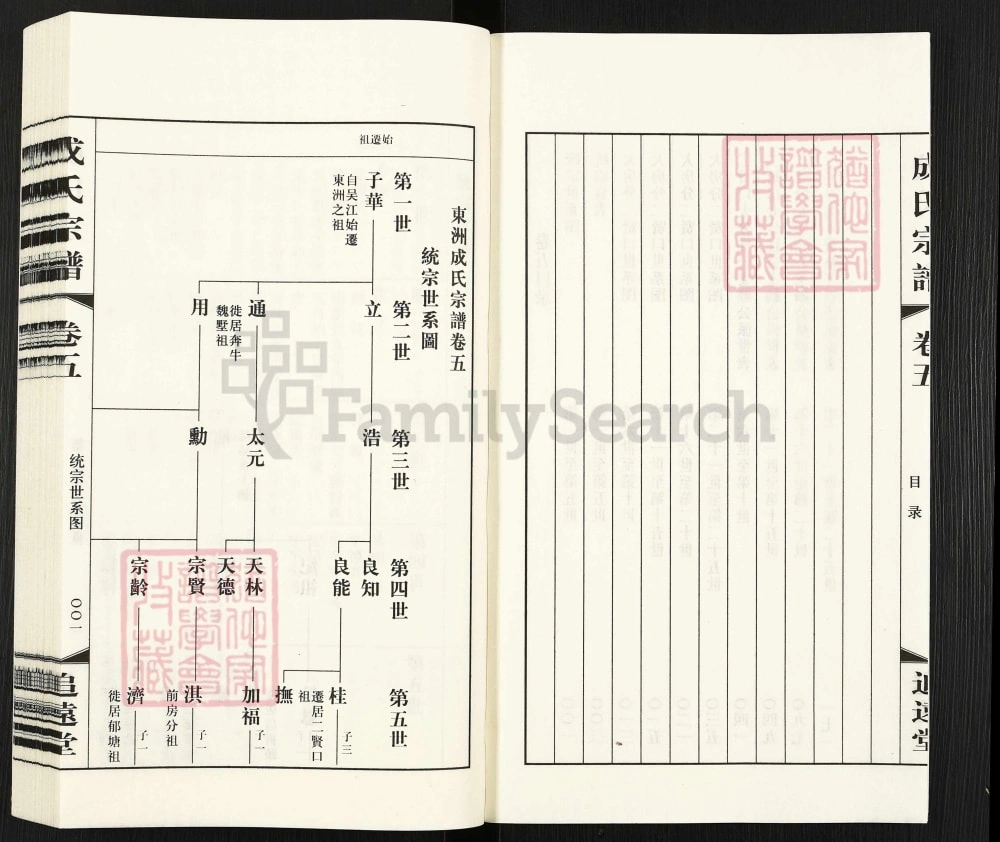 成氏宗譜
卷五
目录
追遠堂
猶他家
譜學會
收藏
東洲成氏宗譜卷五
統宗世系圖
始遷祖
第一世
第二世
第三世
第四世
第五世
子華
自吴江始遷
東洲之祖
立
通
徙居奔牛
魏墅祖
用
浩
太元
勳
良知
良能
天林
天德
宗賢
宗齡
桂
子三
遷居二賢口
祖
撫
加福
子一
淇
子一
前房分祖
濟
子一
徙居郁塘祖
猶他家
譜學會
收藏
成氏宗譜
卷五
统宗世系图
〇〇一
追遠堂
FamilySearch